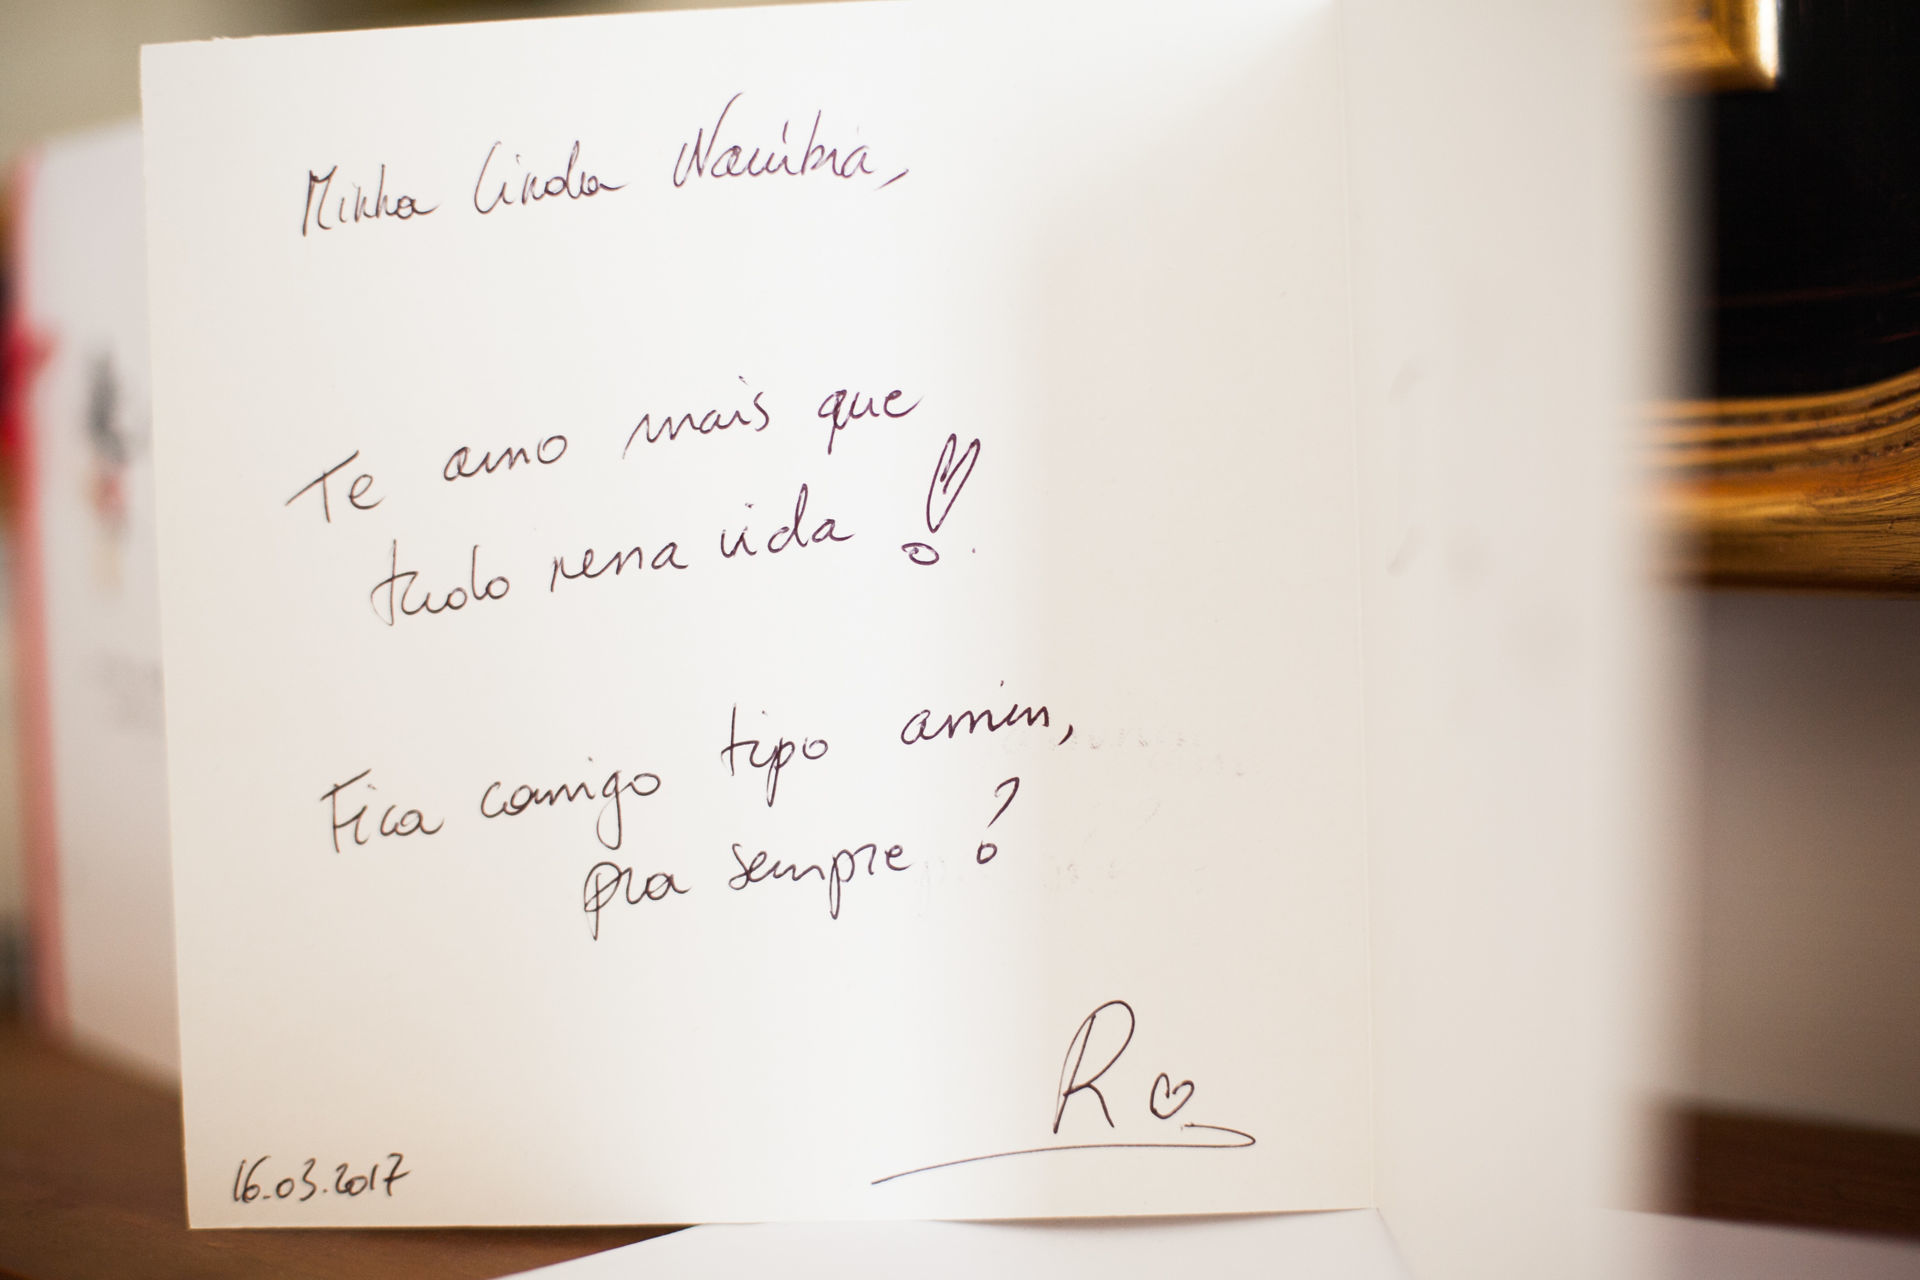 Minha linda Namíbia,
Te amo mais que
tudo nessa vida!
Fica comigo tipo assim,
pra sempre?
R
16.03.2017